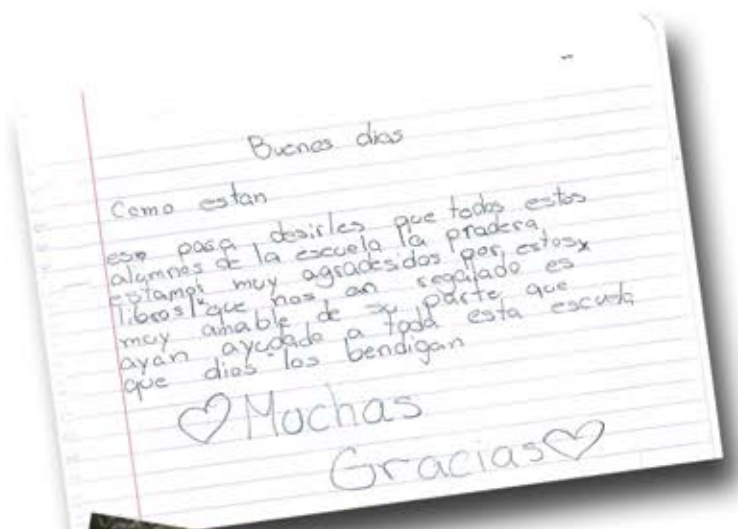 Buenos dias
Como estan
es para desirles que todos estos
alumnos de la escuela la pradera
estamos muy agradesidos por estos
libros que nos an regalado es
muy amable de su parte que
ayan ayudado a toda esta escuela
que dios los bendigan
Muchas
Gracias